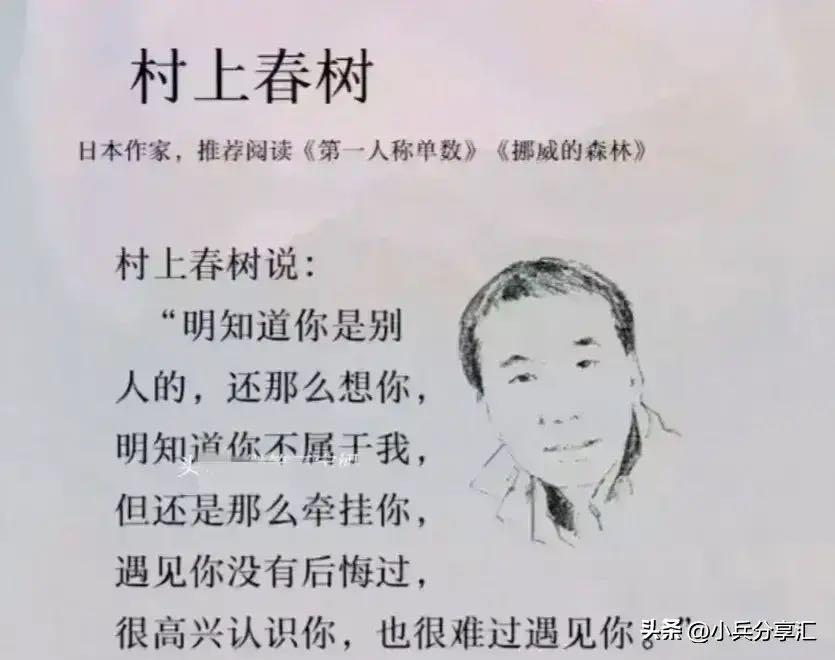 村上春树
日本作家，推荐阅读《第一人称单数》《挪威的森林》
村上春树说：
“明知道你是别
人的，还那么想你，
明知道你不属于我，
但还是那么牵挂你，
遇见你没有后悔过，
很高兴认识你，也很难过遇见你。”
头条 @小兵分享汇